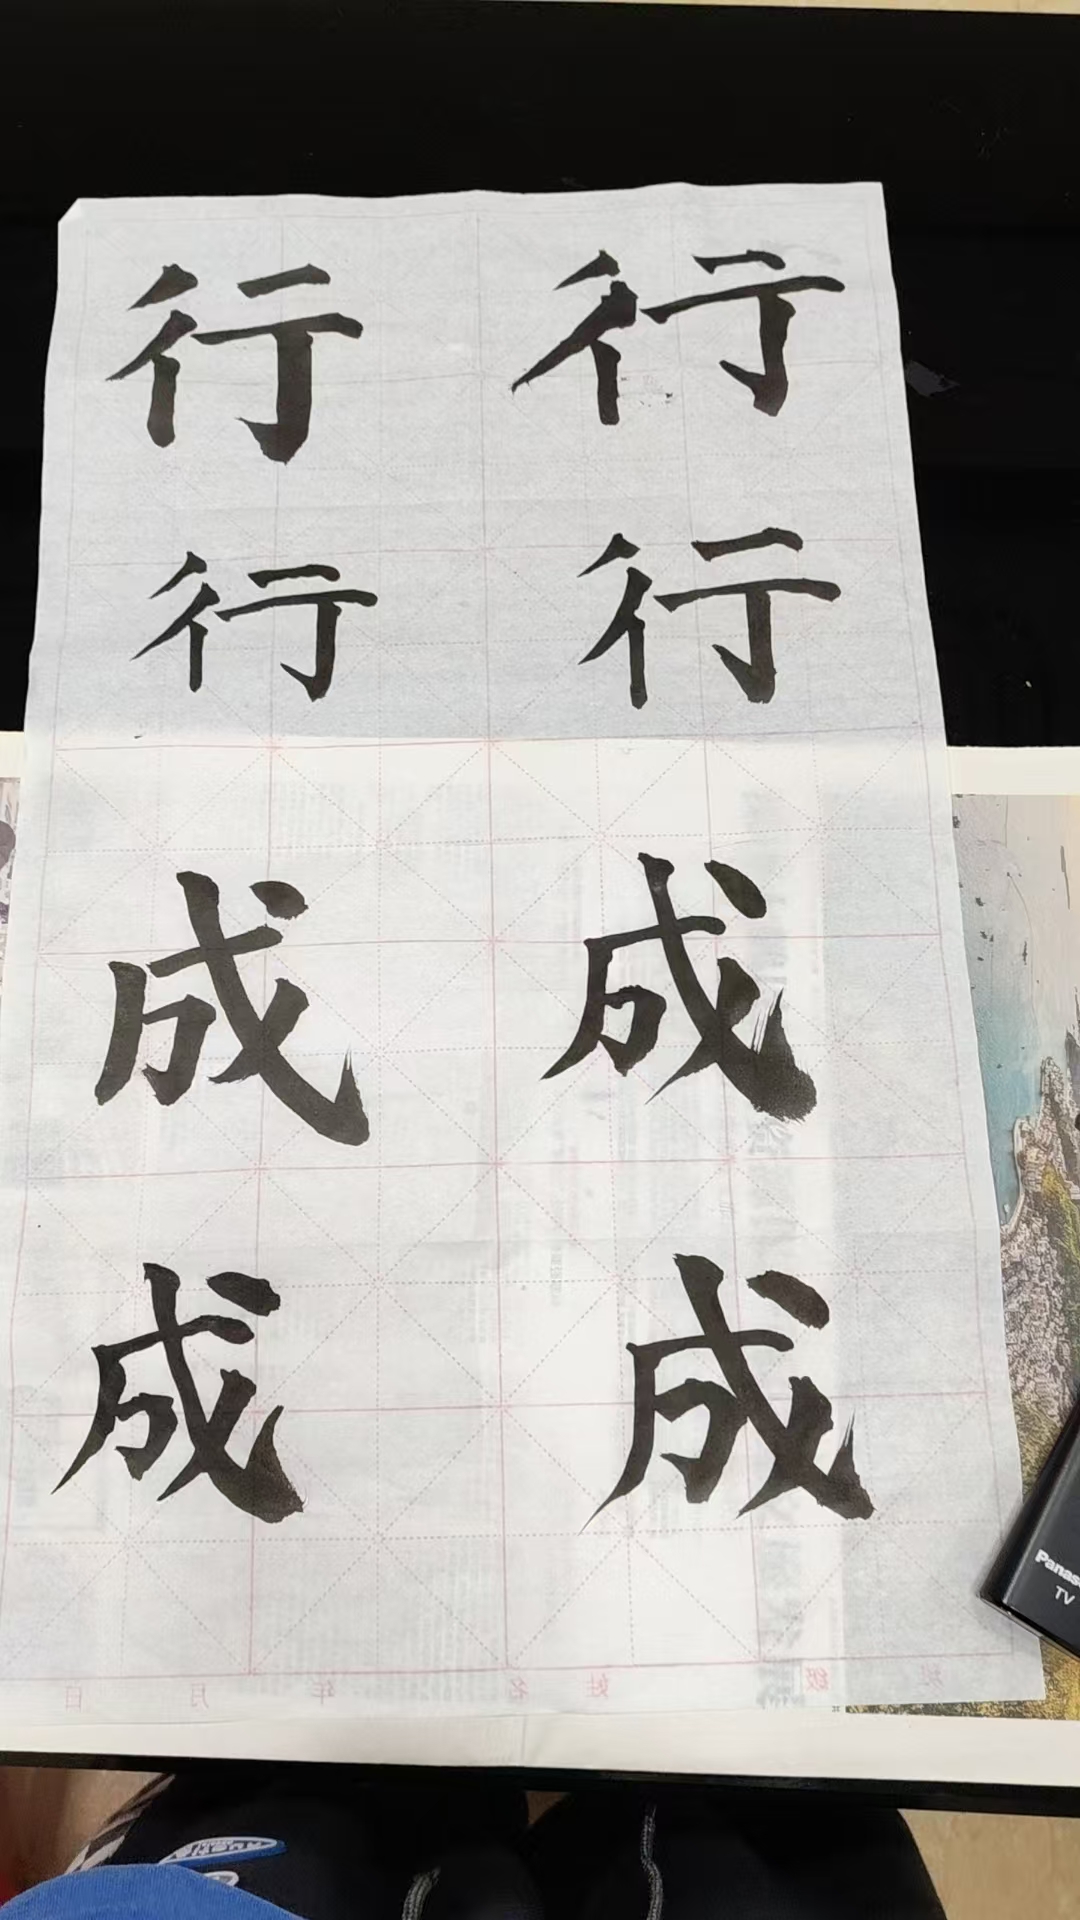 行 行
行 行
成 成
成 成
日 月 年 名 姓 级 班
Panas
TV